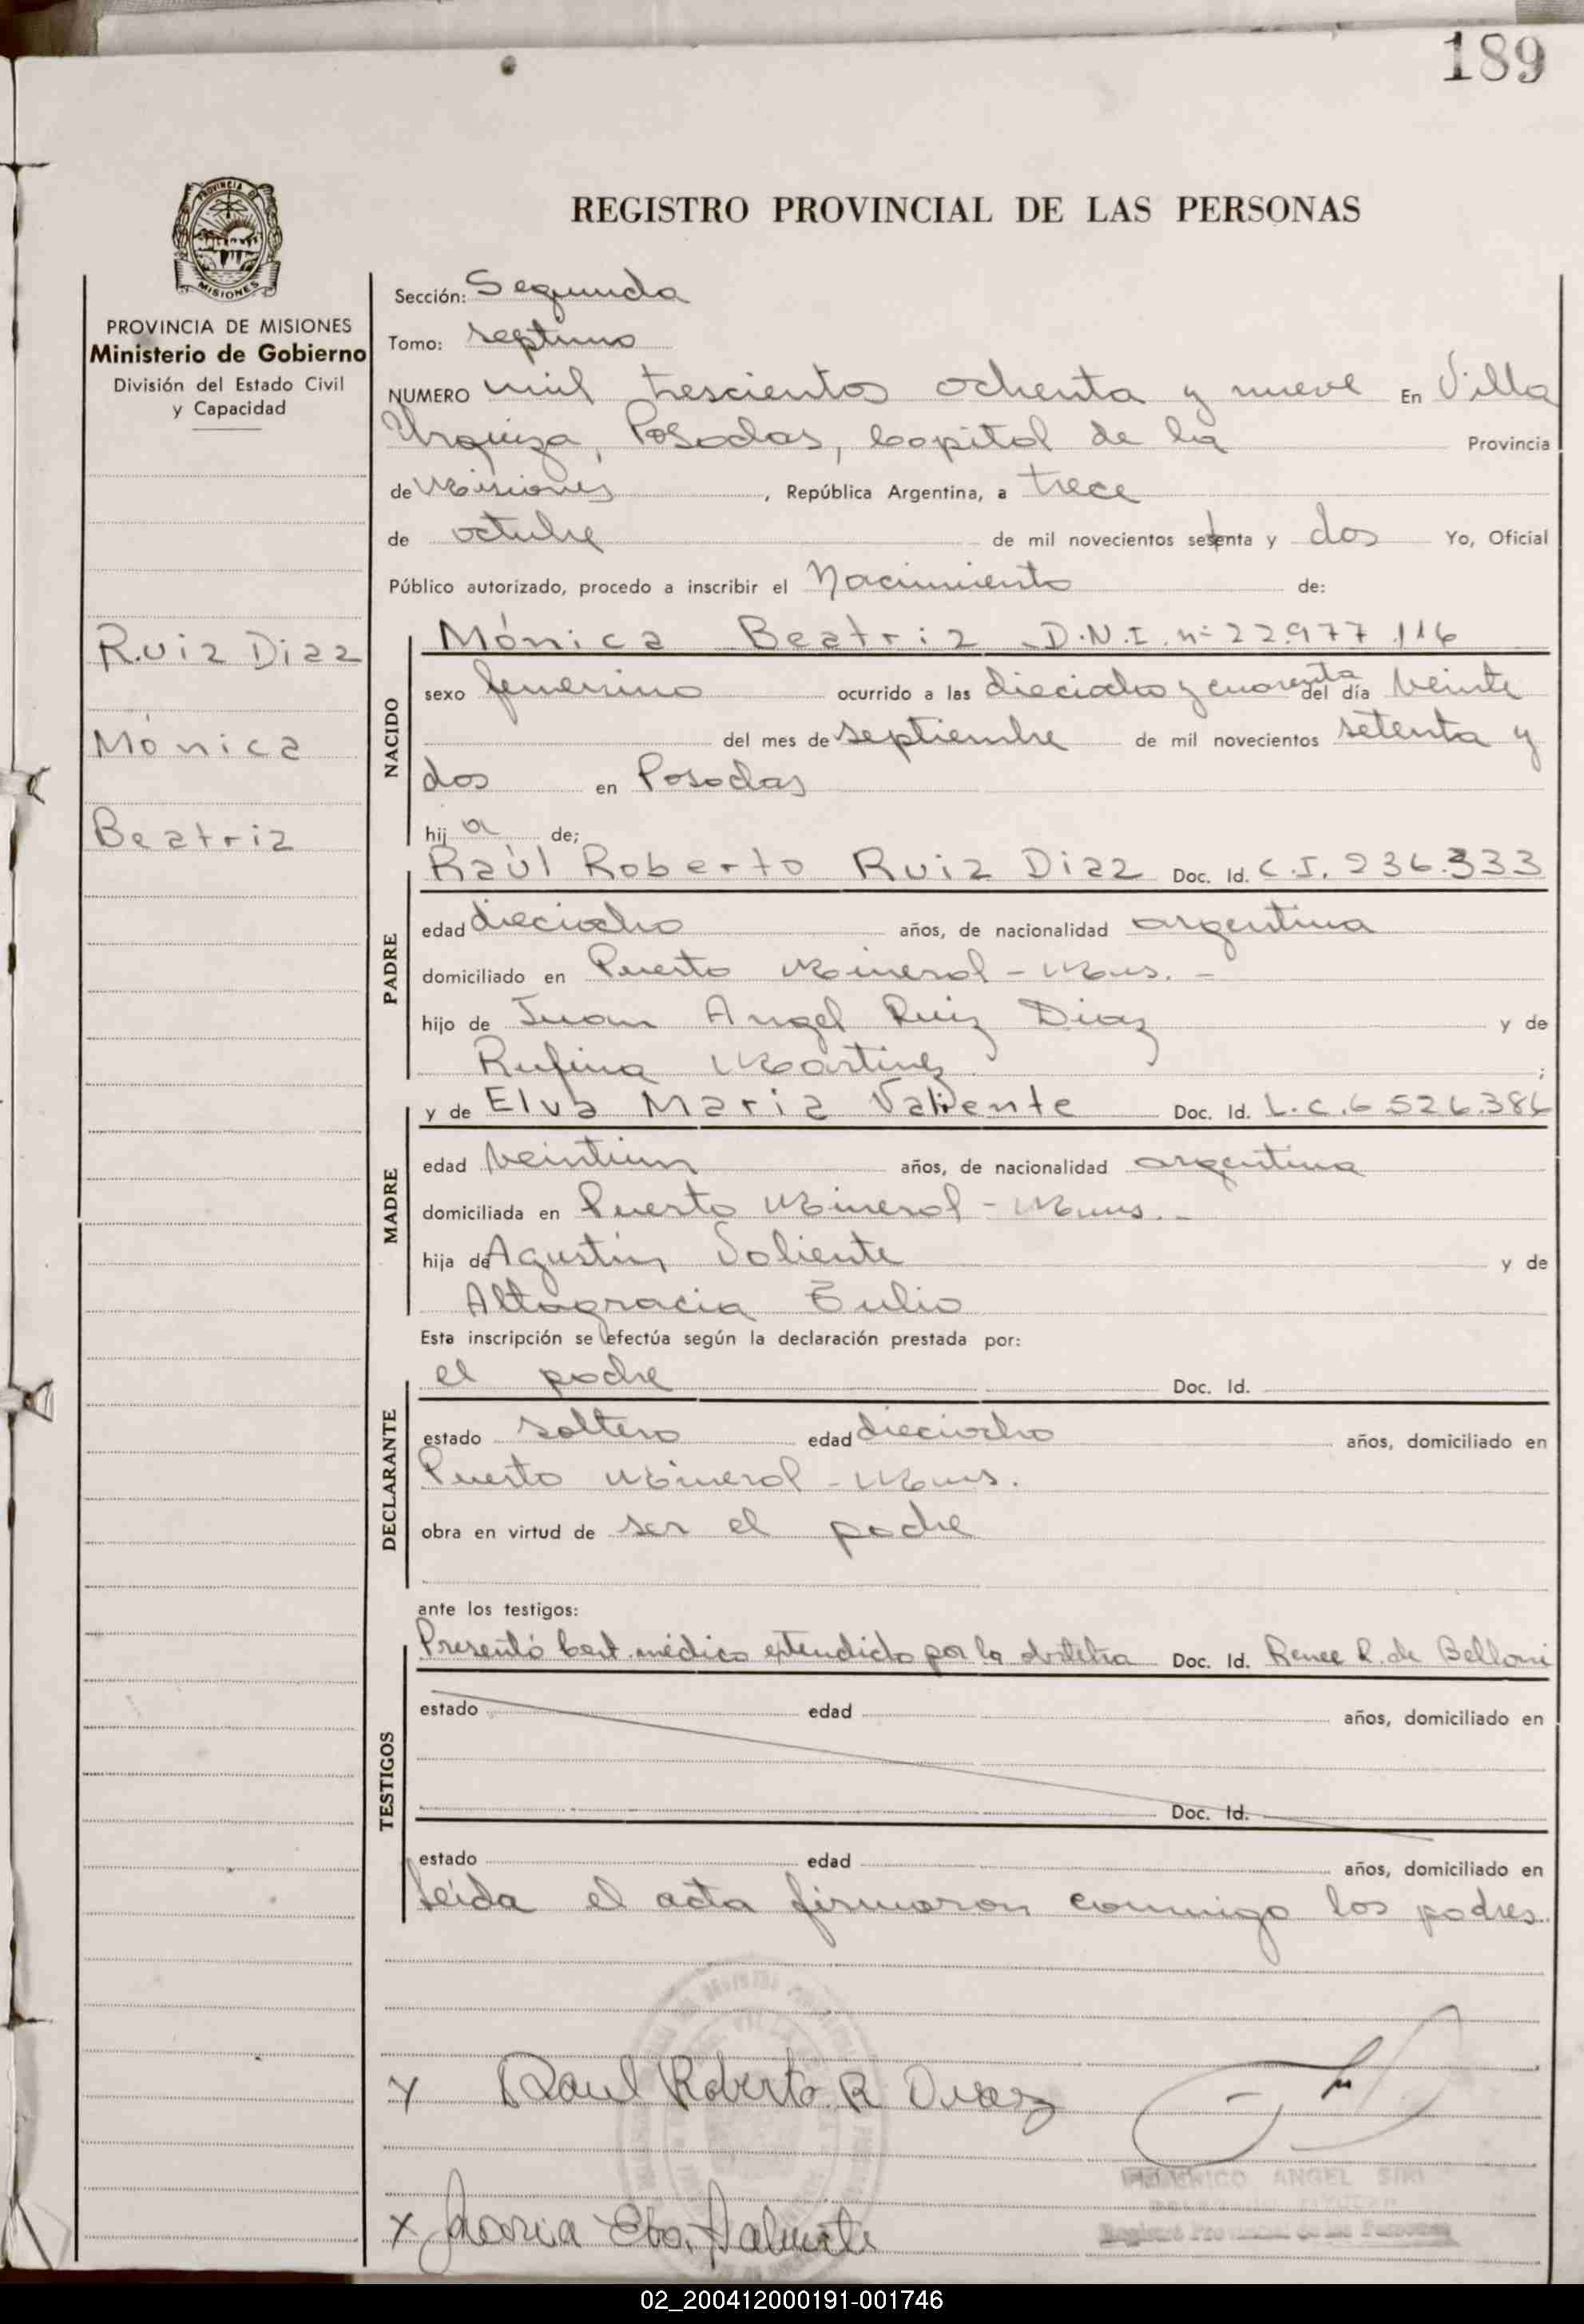 189
PROVINCIA DE
MISIONES
REGISTRO PROVINCIAL DE LAS PERSONAS
PROVINCIA DE MISIONES
Ministerio de Gobierno
División del Estado Civil
y Capacidad
Ruiz Diaz
Mónica
Beatriz
Sección: Segunda
Tomo: septimo
NUMERO mil trescientos ochenta y nueve En Villa
Urquiza, Posadas, Capital de la Provincia
de Misiones, República Argentina, a trece
de octubre de mil novecientos setenta y dos Yo, Oficial
Público autorizado, procedo a inscribir el Nacimiento de:
NACIDO
Mónica Beatriz D.N.I. nº 22.977.116
sexo femenino ocurrido a las dieciocho y cuarenta del día veinte
del mes de septiembre de mil novecientos setenta y
dos en Posadas
hij a de;
PADRE
Raúl Roberto Ruiz Diaz Doc. Id. C.I. 236.333
edad dieciocho años, de nacionalidad argentina
domiciliado en Puerto Mineral - Mnes. -
hijo de Juan Angel Ruiz Diaz y de
Rufina Martinez ;
MADRE
y de Elva Maria Valiente Doc. Id. L.C. 6.526.386
edad veintiun años, de nacionalidad argentina
domiciliada en Puerto Mineral - Mnes. -
hija de Agustín Valiente y de
Altagracia
Esta inscripción se efectúa según la declaración prestada por:
DECLARANTE
el padre Doc. Id.
estado soltero edad dieciocho años, domiciliado en
Puerto Mineral - Mnes.
obra en virtud de ser el padre
ante los testigos:
TESTIGOS
Presentó Cert. médico extendido por la obstetra Doc. Id. Renee R. de Belloni
estado edad años, domiciliado en
Doc. Id.
estado edad años, domiciliado en
Leída el acta firmaron conmigo los padres.
Raul Roberto R Diaz
ANGEL SIRI
Registro Provincial de las Personas
x Maria Elva Valiente
02_200412000191-001746